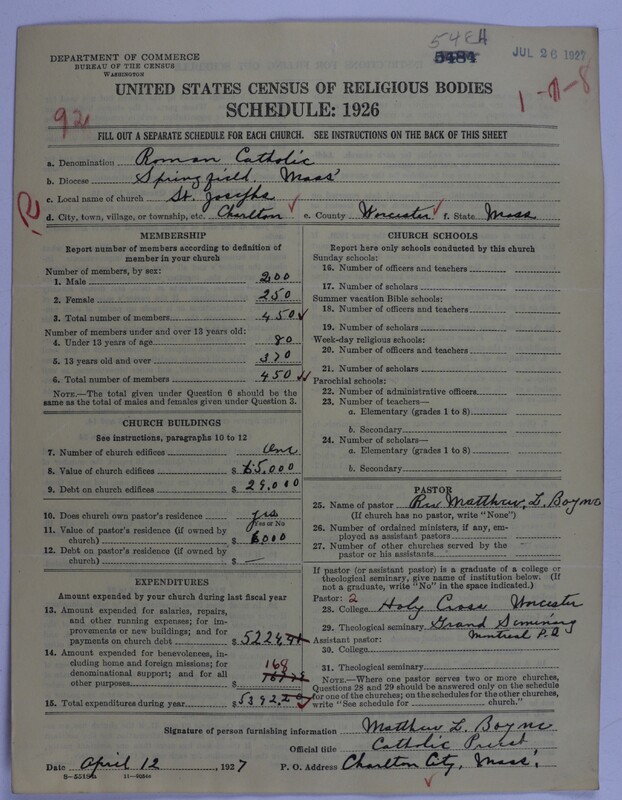 54EA
5484
JUL 26 1927
DEPARTMENT OF COMMERCE
BUREAU OF THE CENSUS
WASHINGTON
UNITED STATES CENSUS OF RELIGIOUS BODIES
SCHEDULE: 1926
92
1-7-8
FILL OUT A SEPARATE SCHEDULE FOR EACH CHURCH. SEE INSTRUCTIONS ON THE BACK OF THIS SHEET
a. Denomination Roman Catholic
b. Diocese Springfield. Mass
c. Local name of church St. Josephs
R
d. City, town, village, or township, etc. Charlton e. County Worcester f. State Mass
MEMBERSHIP
Report number of members according to definition of
member in your church
Number of members, by sex:
1. Male 200
2. Female 250
3. Total number of members 450
Number of members under and over 13 years old:
4. Under 13 years of age 80
5. 13 years old and over 370
6. Total number of members 450
NOTE.—The total given under Question 6 should be
same as the total of males and females given under Question 3.
CHURCH BUILDINGS
See instructions, paragraphs 10 to 12
7. Number of church edifices One
8. Value of church edifices $ 65,000
9. Debt on church edifices $ 29,000
10. Does church own pastor's residence yes
Yes or No
11. Value of pastor's residence (if owned by
church) $ 6000
12. Debt on pastor's residence (if owned by
church) $ —
EXPENDITURES
Amount expended by your church during last fiscal year
13. Amount expended for salaries, repairs,
and other running expenses; for im-
provements or new buildings; and for
payments on church debt $ 5224
14. Amount expended for benevolences, in-
cluding home and foreign missions; for
denominational support; and for all
other purposes $ 168
15. Total expenditures during year $ 5392
CHURCH SCHOOLS
Report here only schools conducted by this church
Sunday schools:
16. Number of officers and teachers
17. Number of scholars
Summer vacation Bible schools:
18. Number of officers and teachers
19. Number of scholars
Week-day religious schools:
20. Number of officers and teachers
21. Number of scholars
Parochial schools:
22. Number of administrative officers
23. Number of teachers—
a. Elementary (grades 1 to 8)
b. Secondary
24. Number of scholars—
a. Elementary (grades 1 to 8)
b. Secondary
PASTOR
25. Name of pastor Rev Matthew L. Boyne
(If church has no pastor, write "None")
26. Number of ordained ministers, if any, em-
ployed as assistant pastors
27. Number of other churches served by the
pastor or his assistants
If pastor (or assistant pastor) is a graduate of a college or
theological seminary, give name of institution below. (If
not a graduate, write "No" in the space indicated.)
Pastor: 2
28. College Holy Cross Worcester
29. Theological seminary Grand Seminary
Montreal P.Q
Assistant pastor:
30. College
31. Theological seminary
NOTE.—Where one pastor serves two or more churches,
Questions 28 and 29 should be answered only on the schedule
for one of the churches; on the schedules for the other churches,
write "See schedule for church."
Signature of person furnishing information Matthew L. Boyne
Official title Catholic Priest
Date April 12, 1927 P. O. Address Charlton City, Mass.